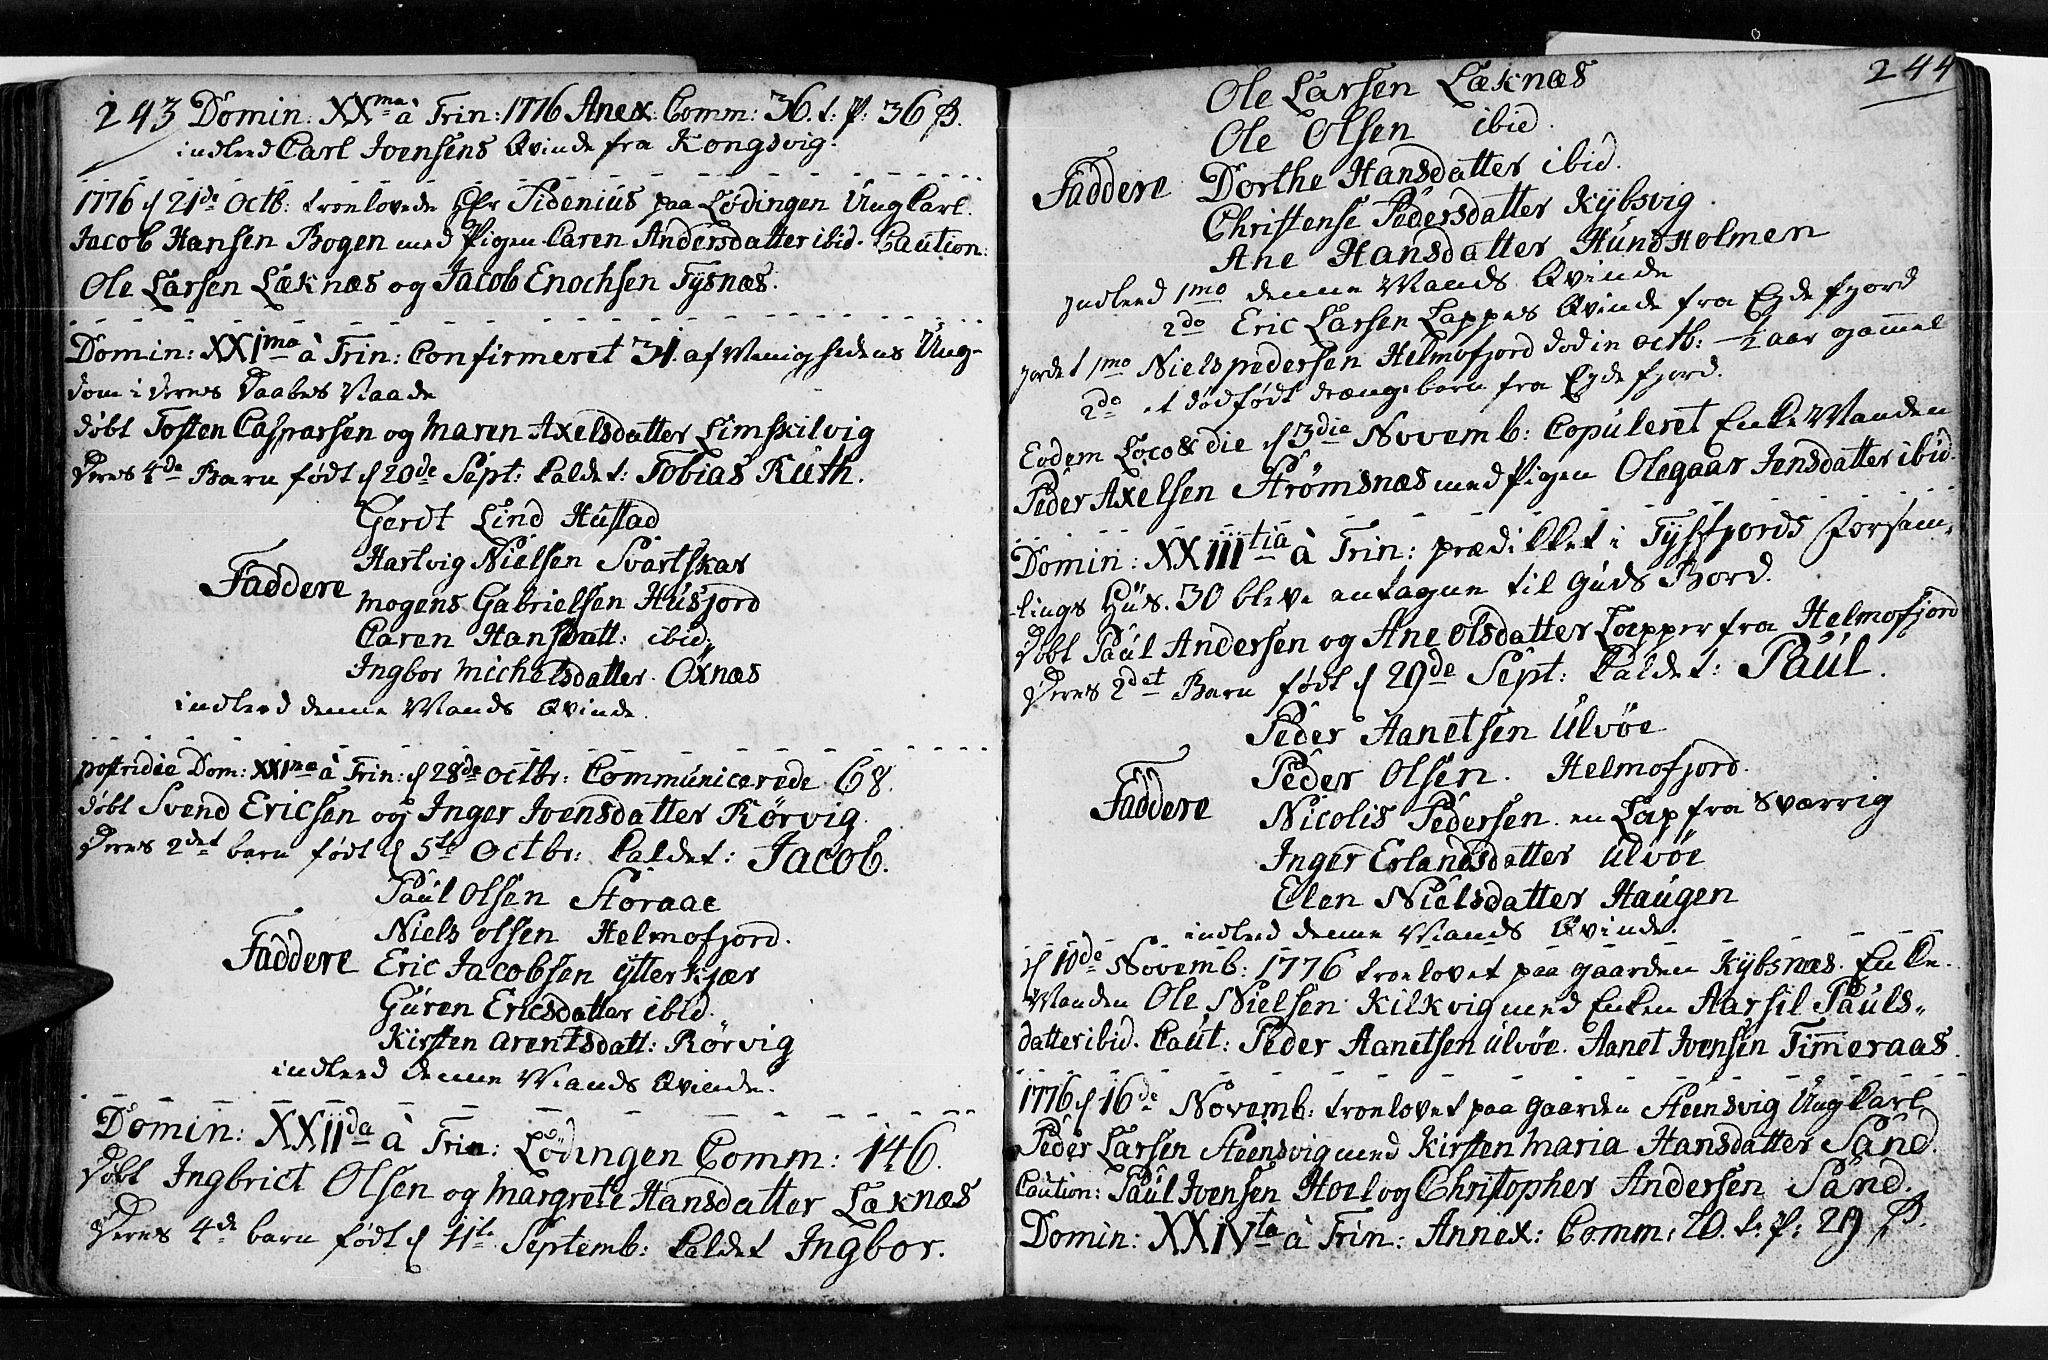 243 Domin: XXma à Trin: 1776 Anex: Comm: 36. t. p: 36 β.
indleed Carl Ivensens Qvinde fra Kongsvig.
1776 d 21de Octb: troelovede Hr Tidenius paa Lødingen Ung Carl
Jacob Hansen Bogen med Pigen Caren Andersdatter ibid. Caution:
Ole Larsen Læknæs og Jacob Enochsen Tysnæs.
Domin: XXIma à Trin: Confirmeret 31. af Menighedens Ung-
dom i deres Daabes Naade
døbt Tosten Casparsen og Maren Axelsdatter Limskilvig
Deres 4de Barn født d 20de Sept: kaldet: Tobias Ruth.
Gerdt Lind Hustad
Hartvig Nielsen Svartskar
Faddere Mogens Gabrielsen Husjord
Caren Hansdatt: ibid
Ingbor Michelsdatter Oxnæs
indleed denne Mands Qvinde.
postridie Dom: XXIma à Trin: d 28de Octbr: Communicerede 68.
døbt Svend Ericsen og Inger Ivensdatter Rørvig
Deres 2det barn født d 5te Octbr: kaldet: Jacob.
Paul Olsen Storaae
Niels Olsen Helmofjord.
Faddere Eric Jacobsen Ytterkjær
Guren Ericsdatter ibid.
Kirsten Arentsdatt: Rørvig
indleed denne Mands Qvinde.
Domin: XXIIda à Trin: Lödingen Comm: 146.
Døbt Ingbrict Olsen og Margrete Hansdatter Læknæs
Deres 4de barn født d 11te Septemb: kaldet Ingbor.
244
Ole Larsen Læknæs
Ole Olsen ibid.
Faddere Dorthe Hansdatter ibid.
Christense Pedersdatter Kybsvig
Ane Hansdatter HundHolmen
Indleed 1mo denne Mands Qvinde
2do Eric Larsen Lappes Qvinde fra Egde fjord
Jordet 1mo Niels Pedersen Helmofjord død in Octb: ½ aar gammel
2do et dødfødt drænge barn fra Egde fjord.
Eodem Loco & die d 3die Novemb: Copuleret EnkeManden
Peder Axelsen Strømsnæs med Pigen Olegaar Jensdatter ibid.
Domin: XXIIItia à Trin: prædikket i Tysfjords Forsam-
lings Hus. 30 bleve antagne til Guds Bord.
Døbt Paul Andersen og Ane Olsdatter Lapper fra Helmofjord
Deres 2det Barn født d 29de Sept: kaldet: Paul.
Peder Aanetsen Ulvøe
Peder Olsen. Helmofjord.
Faddere Nicolis Pedersen en Lap fra Sværrig
Inger Erlandsdatter Ulvøe
Elen Nielsdatter Haugen
indleed denne Mands Qvinde.
d 10de Novemb: 1776 troelovet paa gaarden Kybsnæs. Enke-
Manden Ole Nielsen Kilkvig med Enken Aarsil Pauls-
datter ibid. Caut: Peder Aanetsen Ulvøe. Aanet Ivensen Timeraas.
1776 d 16de Novemb: troelovet paa Gaarden Steensvig Ung Karl
Peder Larsen Steensvig med Kirsten Maria Hansdatter Sand.
Caution: Paul Ivensen Hoel og Christopher Andersen Sand.
Domin: XXIVta à Trin: Annex: Comm: 20. t. p: 29 β.